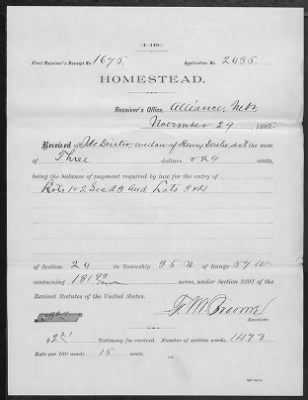 (4-140.)
Final Receiver's Receipt No. 1675. Application No. 2435.
HOMESTEAD.
Receiver's Office, Alliance, Neb
November 29 189
Received of Ida widow of Henry the sum
of Three dollars cents,
being the balance of payment required by law for the entry of
Lots 1 & 2 Sec 23 and Lots 3 & 4
of Section 24 in Township 35 N of Range 57 W
containing acres, under Section 2291 of the
Revised Statutes of the United States.
F. M. Broome
Receiver.
Testimony fee received. Number of written words, 1473
Rate per 100 words 15 cents.